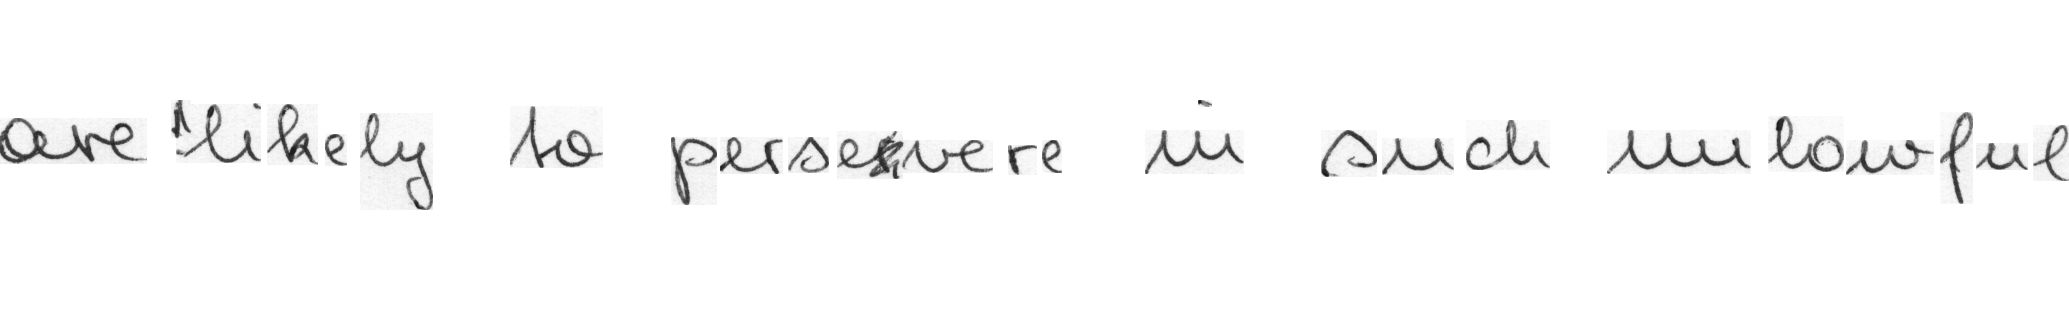 are "likely to persevere in such unlawful